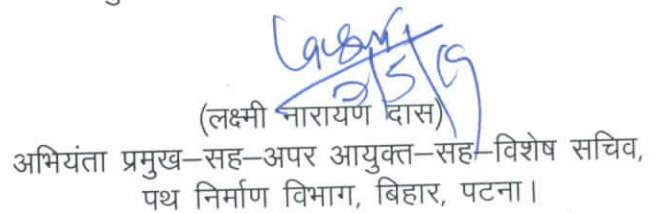 2/5/19
(लक्ष्मी नारायण दास)
अभियंता प्रमुख–सह–अपर आयुक्त–सह–विशेष सचिव,
पथ निर्माण विभाग, बिहार, पटना।